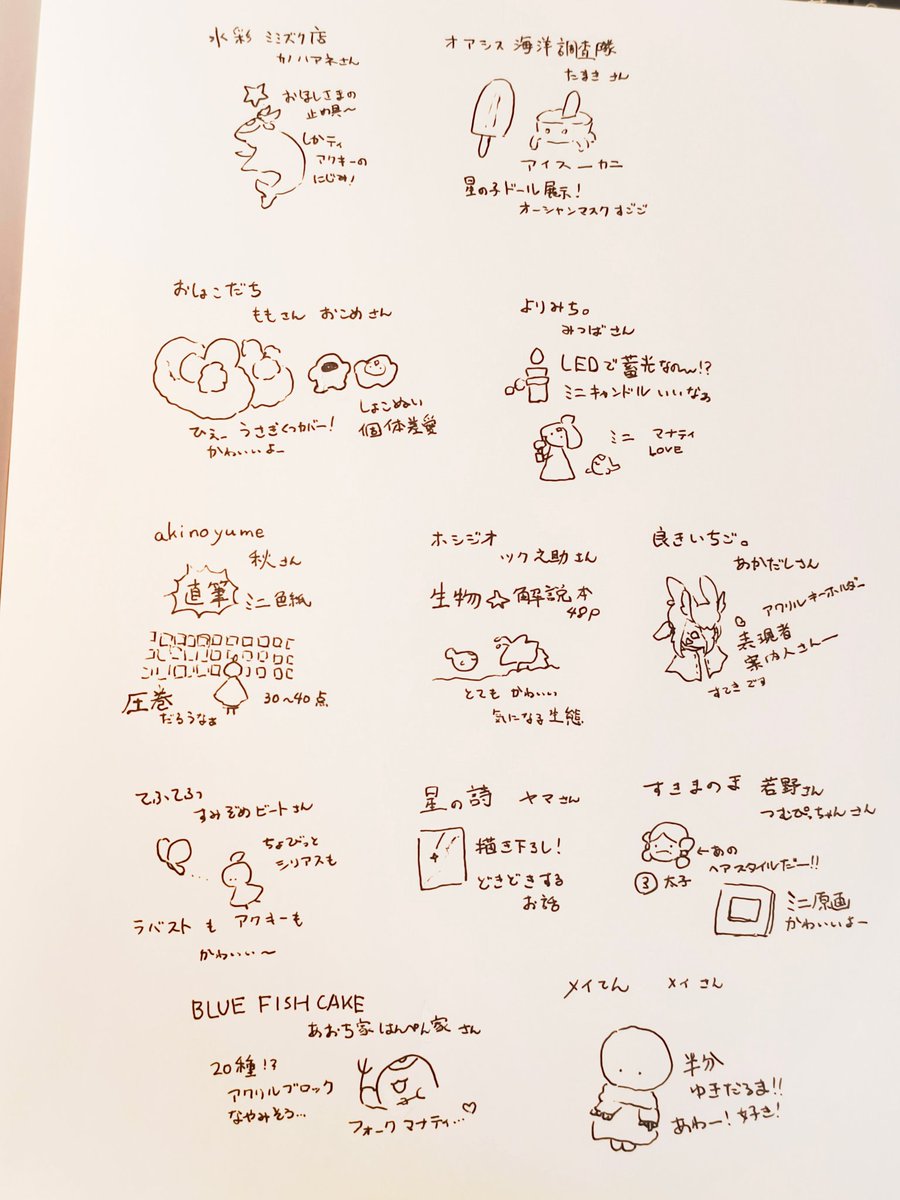 水彩 ミミズク店
カノハアネさん
おほしさまの
止め具〜
しかティ
アクキーの
にじみ!
オアシス 海洋調査隊
たまき さん
アイスーカニ
星の子ドール展示!
オーシャンマスク すごご
おしょこだち
ももさん おこめさん
ひぇー うさぎくつカバー!
かわいいよー
しょこぬい
個体差愛
よりみち。
みつばさん
LEDで蓄光なのー!?
ミニキャンドル いいなぁ
ミニ マナティ
LOVE
akinoyume
秋さん
直筆
ミニ色紙
圧巻
だろうなぁ
30〜40点
ホシジオ
ツク之助さん
生物☆解説本
48P
とても かわいい
気になる生態
良きいちご。
あかだしさん
アクリルキーホルダー
表現者
案内人さんー
すてきです
てふてふっ
すみぞめビートさん
ちょびっと
シリアスも
ラバスト も アクキーも
かわいい〜
星の詩 ヤマさん
描き下ろし!
どきどきする
お話
すきまのま 若野さん
つむぴっちゃんさん
←あの
ヘアスタイルだー!!
③太子
ミニ原画
かわいいよー
BLUE FISH CAKE
あおち家はんぺん家さん
20種!?
アクリルブロック
なやみそう...
フォークマナティ...♡
メイてん メイさん
半分
ゆきだるま!!
あわー!好き!